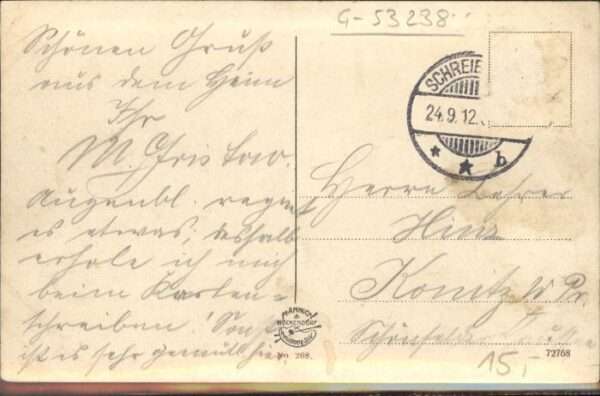 G-53238
Schönen Gruß
aus dem Heim
Ihr
M.
Augenbl. regnet
es etwas, deshalb
erhole ich mich
beim Karten-
schreiben! Sonst
ist es sehr gemütl. hier.
SCHREIB
24.9.12.
* * b
Herrn Lehrer
Hinz
Konitz W. Pr.
No. 268.
72768
15,-